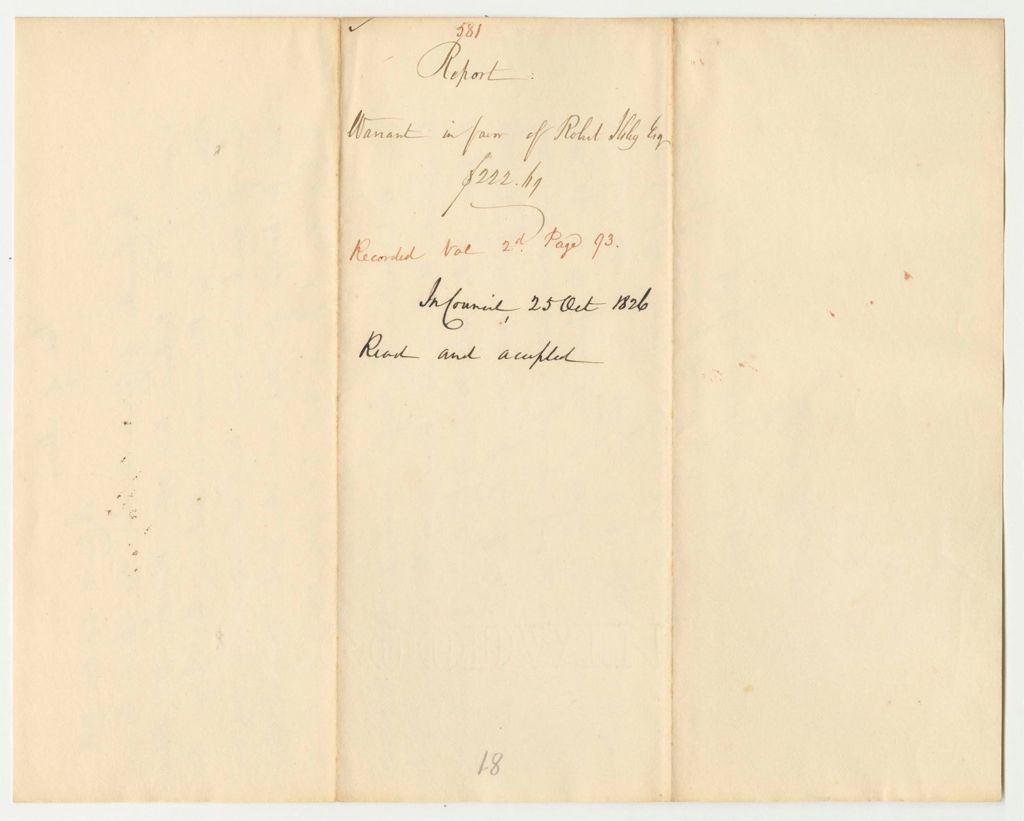 581
Report:
Warrant in favor of Robert Ilsley Esq
$222.49
Recorded Vol 2d. Page 93.
In Council, 25 Oct 1826
Read and accepted
18